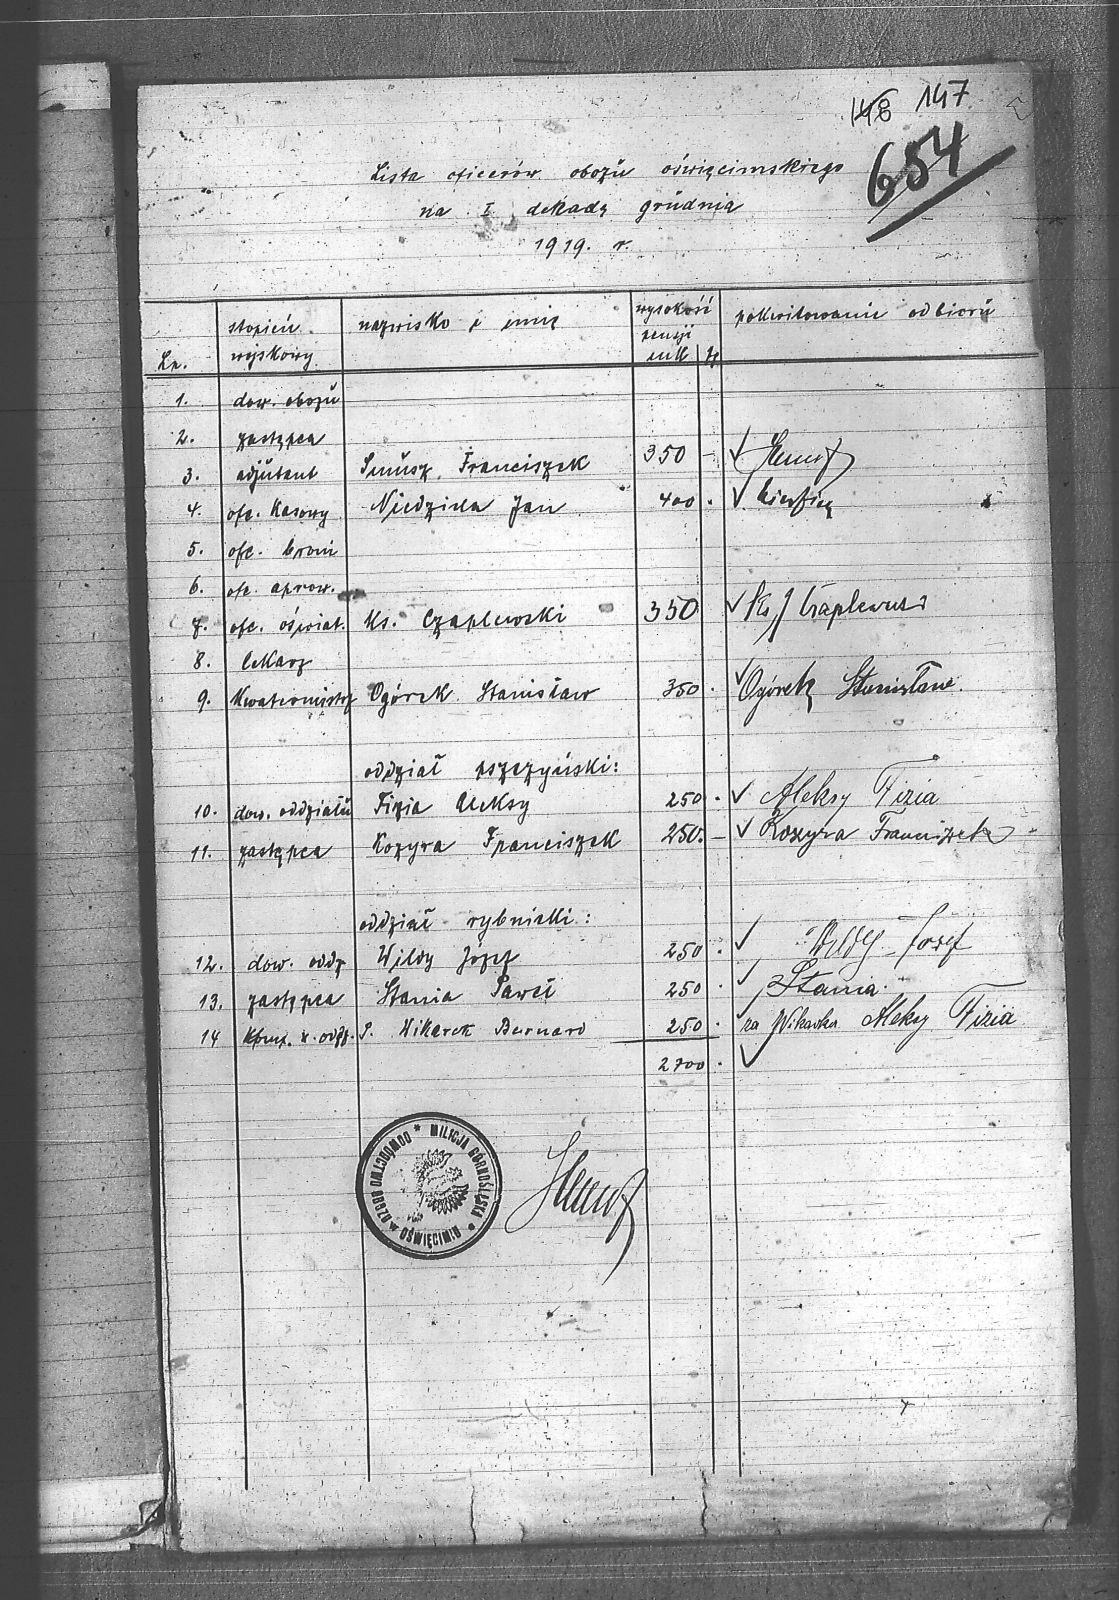 148 147
654
Lista oficerów obozu oświęcimskiego
na I dekadę grudnia
1919. r.
Lp. stopień wojskowy nazwisko i imię wysokość pensji mk fg pokwitowanie odbioru
1. dow. obozu
2. zastępca
3. adjutant Franciszek 350 -
4. ofc. kasowy Niedziela Jan 400 .
5. ofc. broni
6. ofc. aprow.
7. ofc. oświat. Ks. Czaplewski 350 Ks J Czaplewski
8. lekarz
9. kwatermistrz Ogórek Stanisław 350 . Ogórek Stanisław.
oddział pszczyński:
10. dow. oddziału Fizia Aleksy 250 . Aleksy Fizia
11. zastępca Kozyra Franciszek 250. - Kozyra Franciszek
oddział rybnicki:
12. dow. oddz Wildy Józef 250 . Wildy Josef
13. zastępca Stania Paweł 250 . Stania.
14 Wikarek Bernard 250 . za Wikarka Aleksy Fizia
2700 .
DOWÓDCTWO OBOZU w OŚWIĘCIMIU * MILICJA GÓRNOŚLĄSKA *